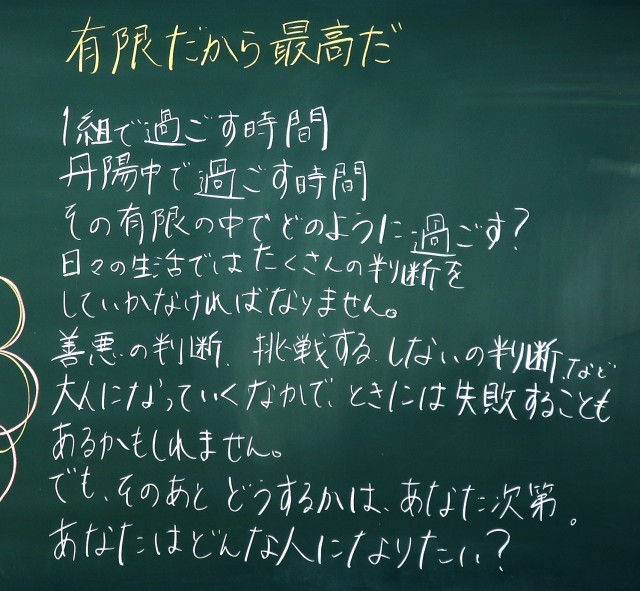 有限だから最高だ
1組で過ごす時間
丹陽中で過ごす時間
その有限の中でどのように過ごす?
日々の生活ではたくさんの判断を
していかなければなりません。
善悪の判断、挑戦する、しないの判断、など
大人になっていくなかで、ときには失敗することも
あるかもしれません。
でも、そのあとどうするかは、あなた次第。
あなたはどんな人になりたい?